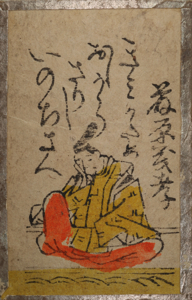 藤原義孝
きみかため
おしから
さりし
いのちさへ